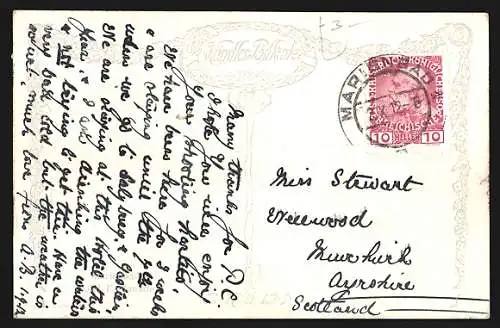 £3-
Künstler-Postkarte
MARIENBAD
10 HELLER 10
Many thanks for P.C.
I hope you are enjoy
your shooting parties.
We have been here for 3 weeks
& are staying until the 9th
when we go to Salzburg & Gastein.
We are staying at this Hotel this
year. I am drinking the waters
& not trying to get thin. Have a
very bad cold but the weather is
Much love
from A.B. 1912
Miss Stewart
Wellwood
Muirkirk
Ayrshire
Scotland